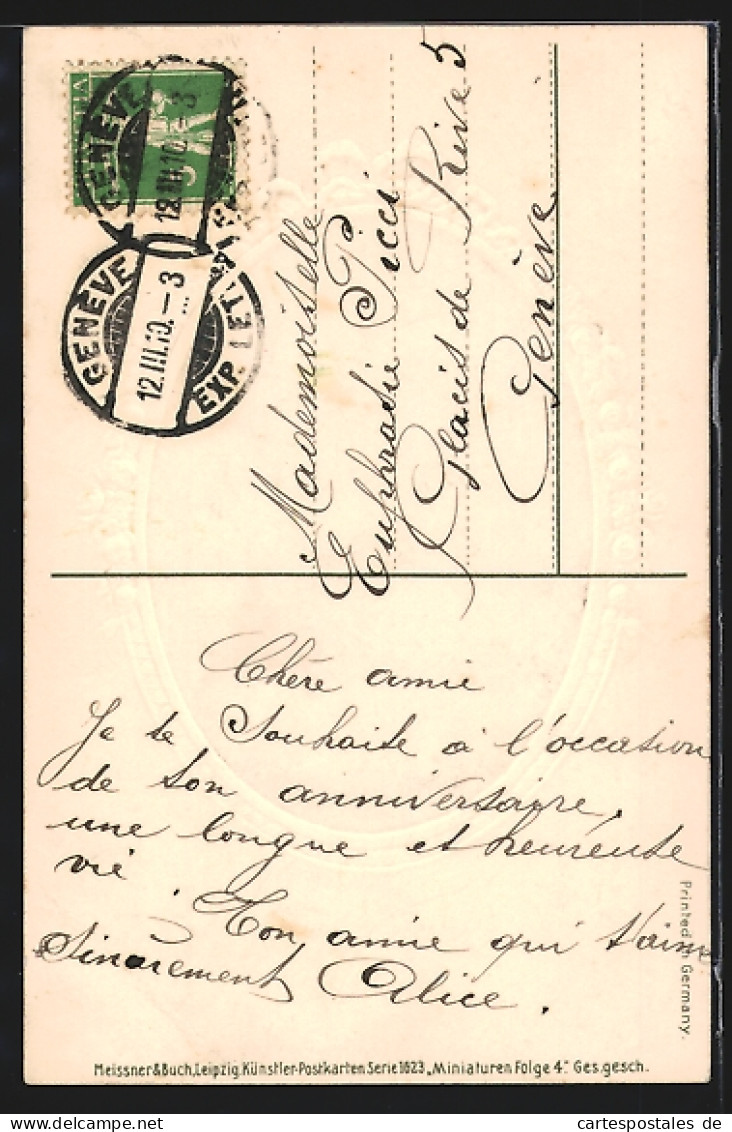 HELVETIA
GENÈVE
12.III.10.-3
GENÈVE
12.III.10.-3
EXP. LET.
Mademoiselle
Euphrasie Picci
Glacis de Rive 5
Genève
Chère amie
Je te souhaite à l'occasion
de ton anniversaire,
une longue et heureuse
vie.
Ton amie qui t'aime
sincèrement Alice.
Printed in Germany.
Meissner & Buch, Leipzig. Künstler-Postkarten Serie 1623 „Miniaturen Folge 4." Ges. gesch.
cartespostales de